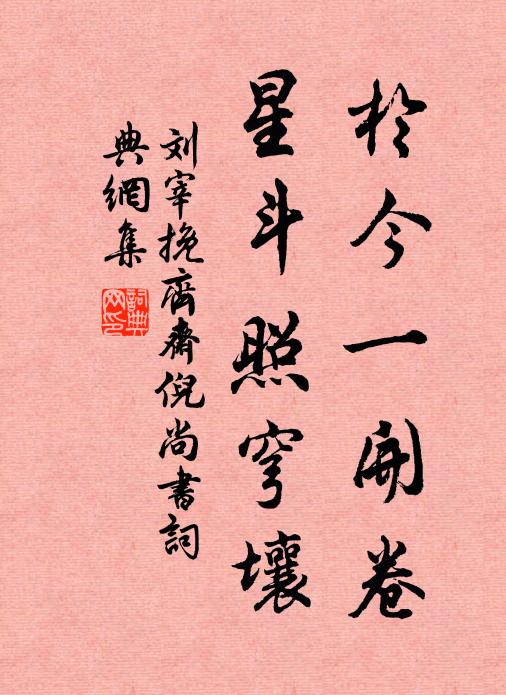 於今一開卷
星斗照穹壤
刘宰挽齊齋倪尚書詞
典網集
詞典网印